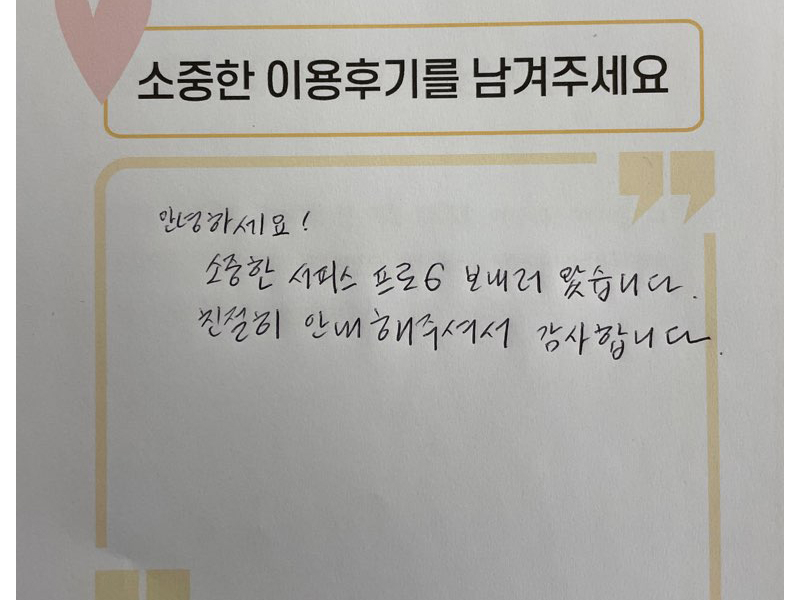 소중한 이용후기를 남겨주세요
안녕하세요!
소중한 서피스 프로6 보내러 왔습니다.
친절히 안내해주셔서 감사합니다.